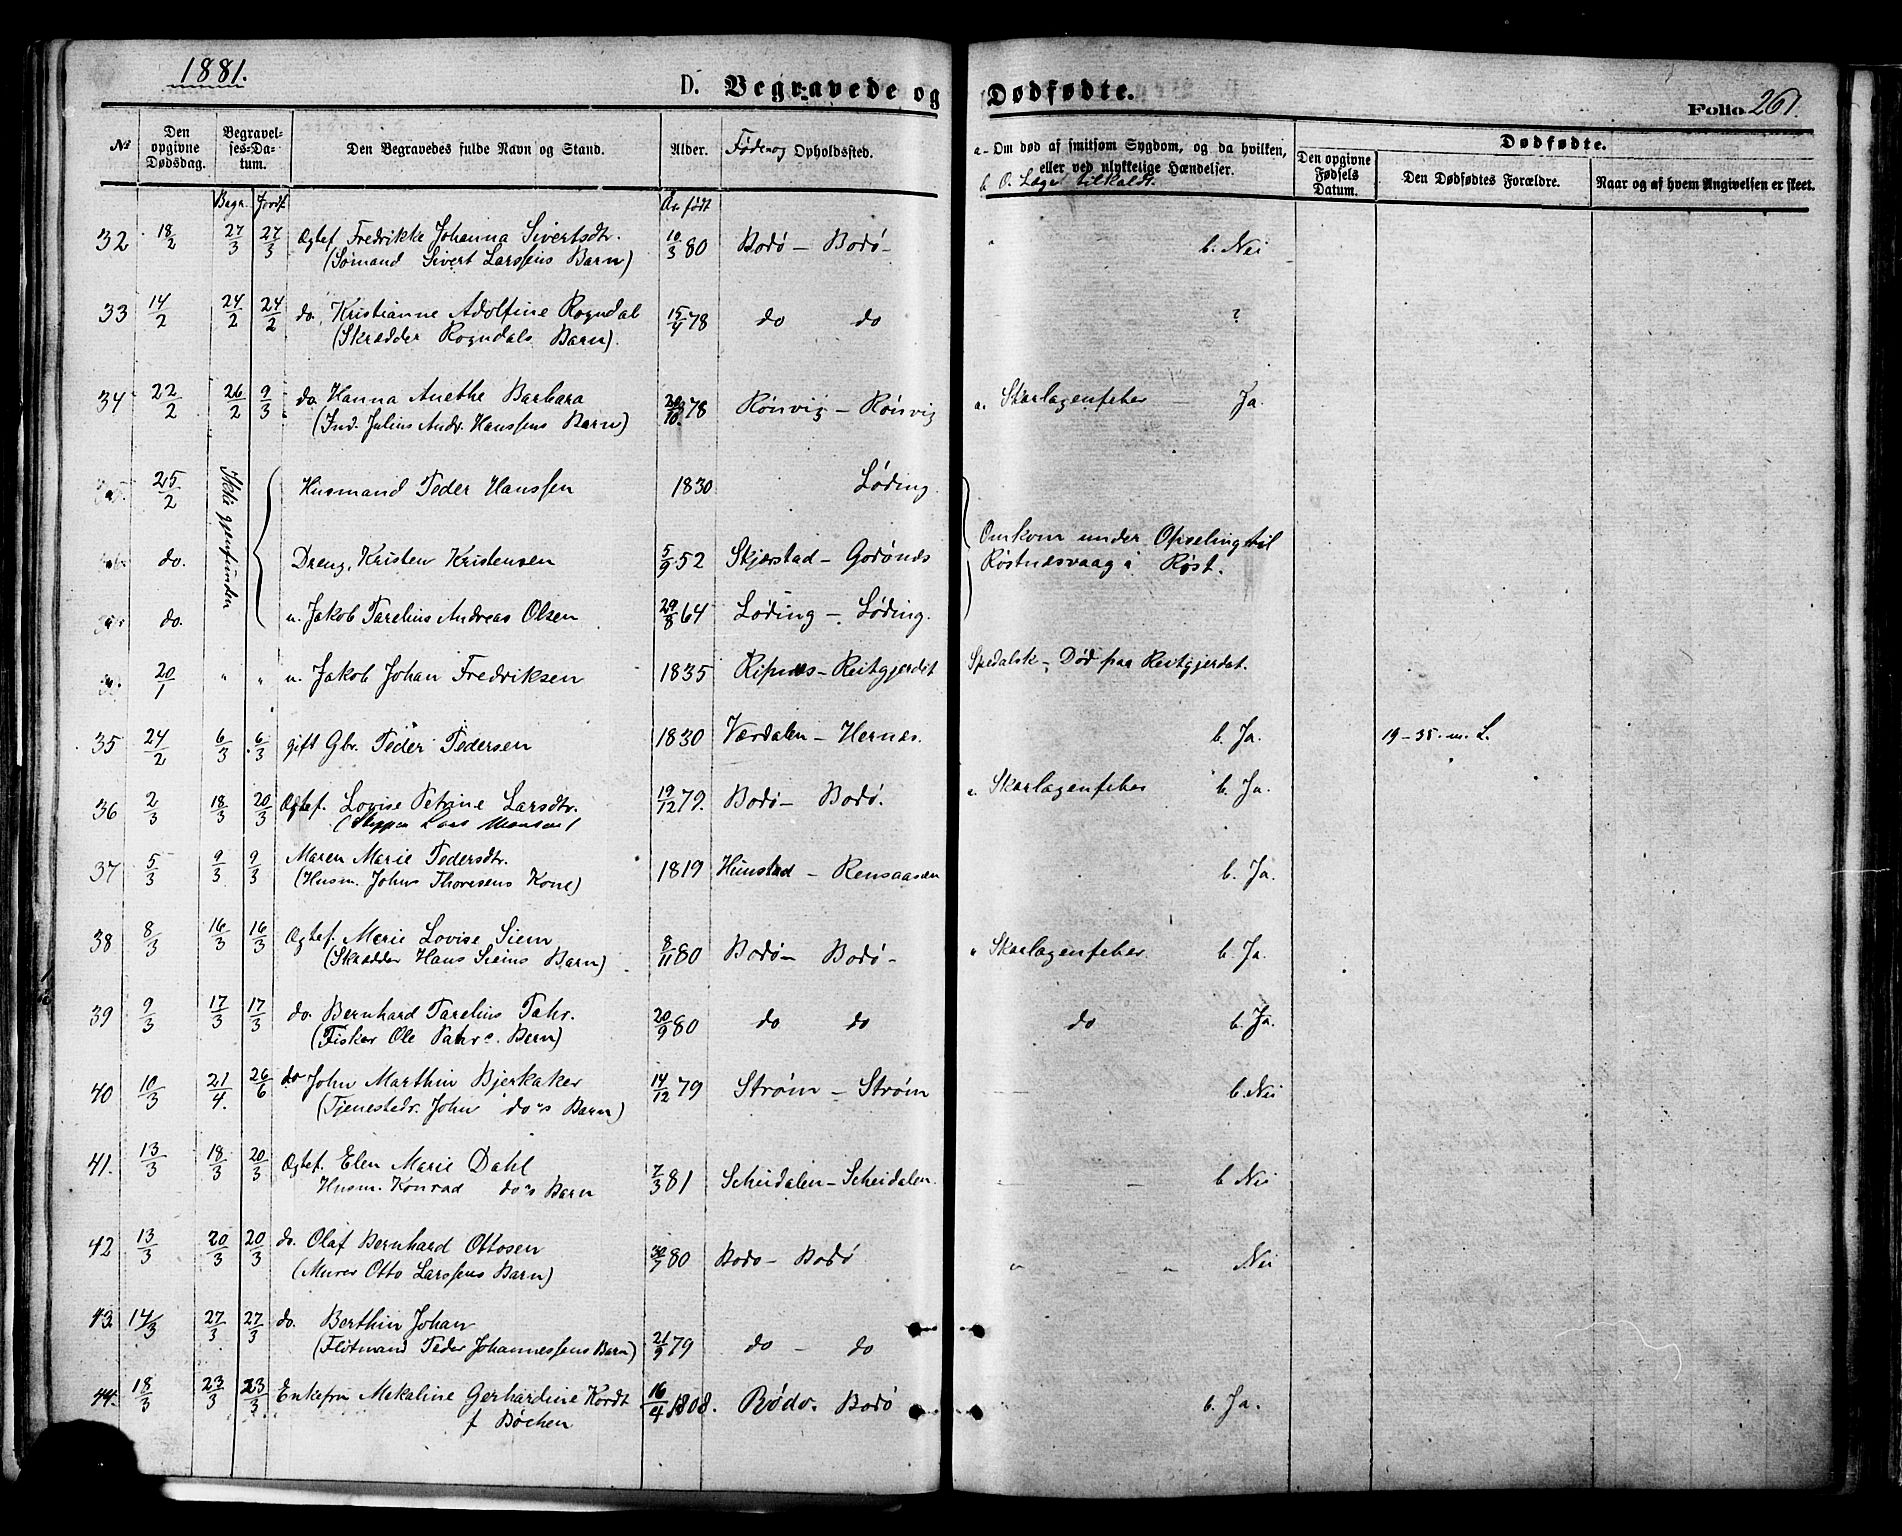 1881.
D. Begravede og Dødfødte.
Folio 261.
№
Den opgivne Dødsdag.
Begravelses-Datum.
Den Begravedes fulde Navn og Stand.
Alder.
Føde- og Opholdssted.
a - Om død af smitsom Sygdom, og da hvilken, eller ved ulykkelige Hændelser.
b. O. Læge tilkaldt.
Dødfødte.
Den opgivne Fødsels Datum.
Den Dødfødtes Forældre.
Naar og af hvem Angivelsen er skeet.
Begr. Jordf. Aar født
32 18/2 27/3 27/3 Ægtef. Fredrikke Johanna Sivertsdtr. 10/3 80 Bodø - Bodø - " b. Nei
(Sømand Sivert Larssens Barn)
33 14/2 24/2 24/2 do. Kristianne Adolfine Rogndal 15/4 78 do do ?
(Skrædder Rogndals Barn).
34 22/2 26/2 9/3 do. Hanna Anethe Barbara 78 Rønvig - Rønvig a. Skarlagensfeber Ja.
(Ind. Julius Andr. Hanssens Barn)
25/2 Ikke gjenfunden Husmand Peder Hanssen 1830 Løding.
do. Dreng, Kristen Kristensen 5/9 52 Skjærstad - Godønæs Omkom under Opseling til
Røstnæsvaag i Røst.
do. u. Jakob Parelius Andreas Olsen 29/8 64 Løding - Løding.
20/1 " " u. Jakob Johan Fredriksen 1835 Ripnæs - Reitgjerdet Spedalsk - Død paa Reitgjerdet.
35 24/2 6/3 6/3 gift Gbr. Peder Pedersen 1830 Værdalen - Hernæs. b. Ja. 19-35. m. L.
36 2/3 18/3 20/3 Ægtef. Lovise Petrine Larsdtr. 19/12 79. Bodø - Bodø. a. Skarlagensfeber b. Ja.
(Skipper Lars Monsens)
37 5/3 9/3 9/3 Maren Marie Pedersdtr. 1819 Hunstad - Rensaasen b. Ja.
(Husm. Johns Thoresens Kone)
38 8/3 16/3 16/3 Ægtef. Marie Lovise Siem 8/11 80 Bodø - Bodø - " Skarlagensfeber b. Ja.
(Skrædder Hans Siems Barn)
39 9/3 17/3 17/3 do. Bernhard Parelius Pahr. 20/9 80 do do do b. Ja.
(Fisker Ole Pahr's Barn)
40 10/3 21/4. 26/6 do John Marthin Bjerkaker 14/12 79 Strøm - Strøm b. Nei
(Tjenestedr. John do's Barn)
41. 13/3 18/3 20/3 Ægtef. Elen Marie Dahl 7/3 81 Scheidalen - Scheidalen. b. Nei
Husm. Konrad do's Barn
42 13/3 20/3 20/3 do. Olaf Bernhard Ottosen 80 Bodø - Bodø " " Nei
(Murer Otto Larssens Barn)
43 14/3 27/3 27/3 do. Berthin Johan
(Fløtmand Peder Johannessens Barn) 21/9 79 do - do
44. 18/3 23/3 23/3 Enkefru Mekaline Gerhardine Kordt 16/4 1808. Rødø. Bodø b. Ja.
f. Bøchen